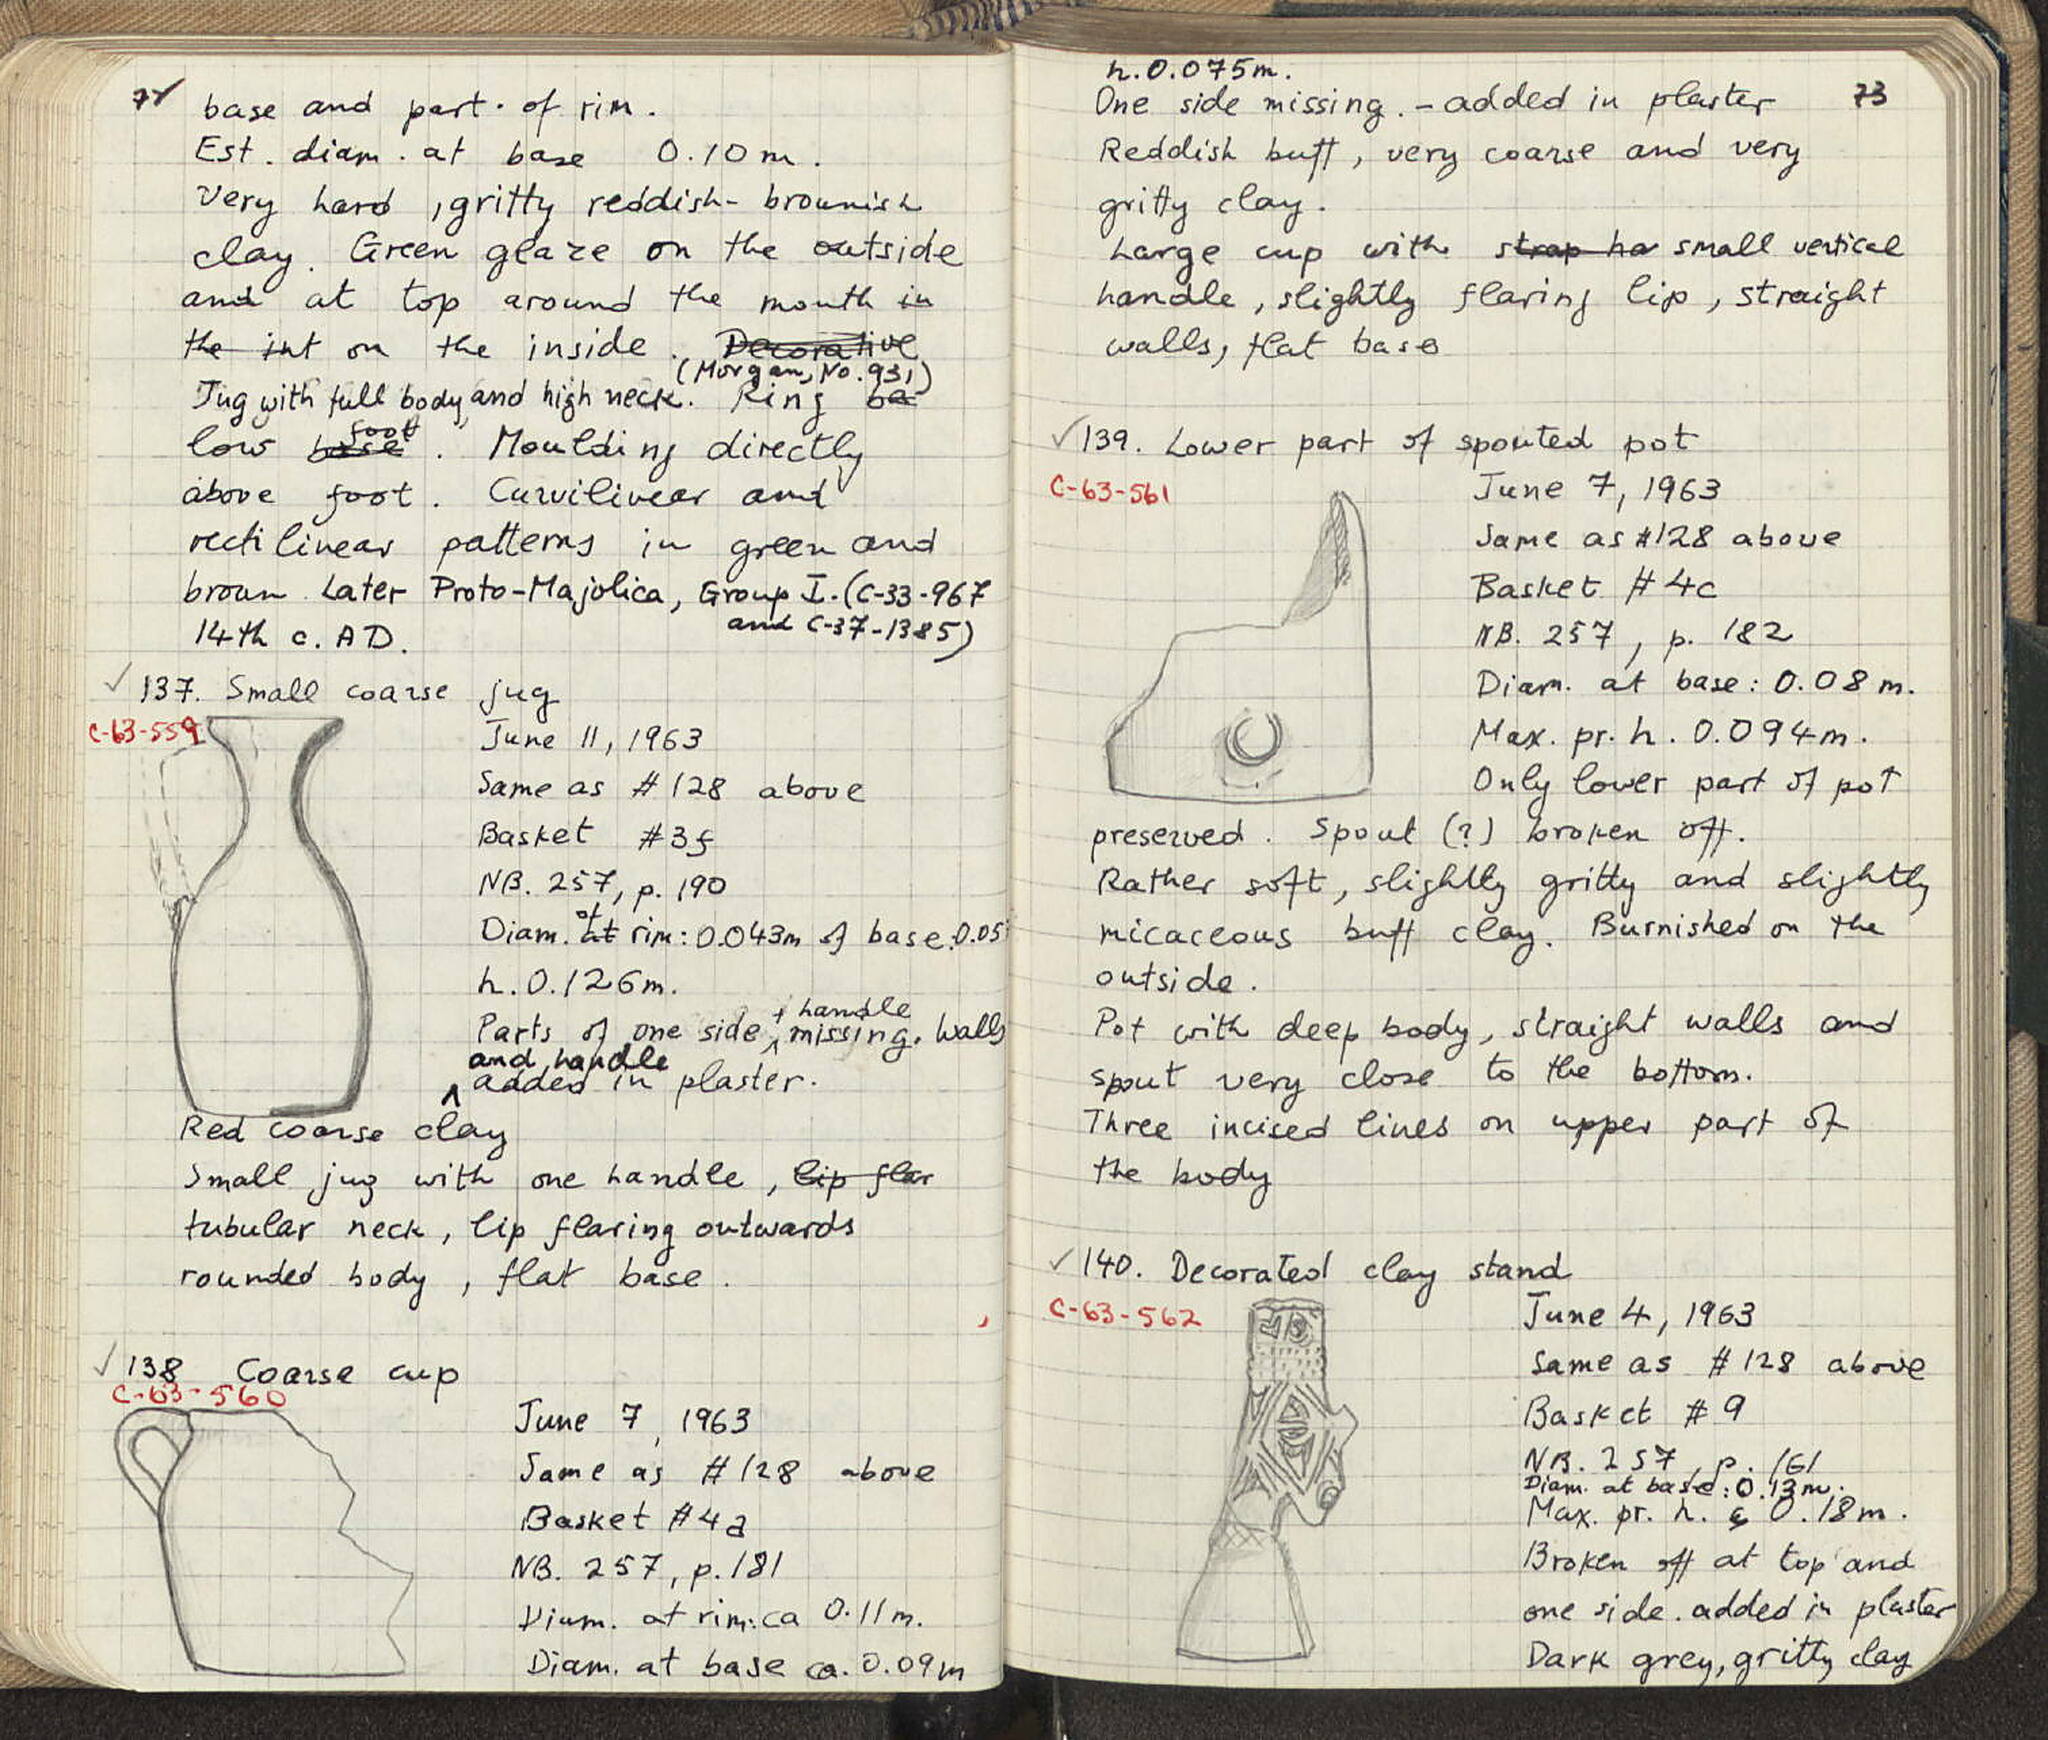 72
base and part of rim.
Est. diam. at base 0.10 m.
Very hard, gritty reddish-brownish
clay. Green glaze on the outside
and at top around the mouth in
the int on the inside. Decorative
(Morgan, No. 931)
Jug with full body, and high neck. Ring ba
low base foot. Moulding directly
above foot. Curvilinear and
rectilinear patterns in green and
brown Later Proto-Majolica, Group I. (C-33-967
and C-37-1385)
14th c. AD.
137. Small coarse jug
C-63-559
June 11, 1963
Same as #128 above
Basket #3f
NB. 257, p. 190
Diam. at of rim: 0.043m of base: 0.05
h. 0.126m.
Parts of one side + handle missing. Walls
and handle
added in plaster.
Red coarse clay
Small jug with one handle, lip flar
tubular neck, lip flaring outwards
rounded body, flat base.
138 Coarse cup
C-63-560
June 7, 1963
Same as #128 above
Basket #4a
NB. 257, p. 181
Diam. at rim: ca 0.11m.
Diam. at base ca. 0.09m
73
h. 0.075m.
One side missing. - added in plaster
Reddish buff, very coarse and very
gritty clay.
Large cup with strap ha small vertical
handle, slightly flaring lip, straight
walls, flat base
139. Lower part of spouted pot
C-63-561
June 7, 1963
Same as #128 above
Basket #4c
NB. 257, p. 182
Diam. at base: 0.08 m.
Max. pr. h. 0.094m.
Only lower part of pot
preserved. Spout (?) broken off.
Rather soft, slightly gritty and slightly
micaceous buff clay. Burnished on the
outside.
Pot with deep body, straight walls and
spout very close to the bottom.
Three incised lines on upper part of
the body
140. Decorated clay stand
C-63-562
June 4, 1963
Same as #128 above
Basket #9
NB. 257, p. 161
Diam. at base: 0.13m.
Max. pr. h. 0.18m.
Broken off at top and
one side. added in plaster
Dark grey, gritty clay